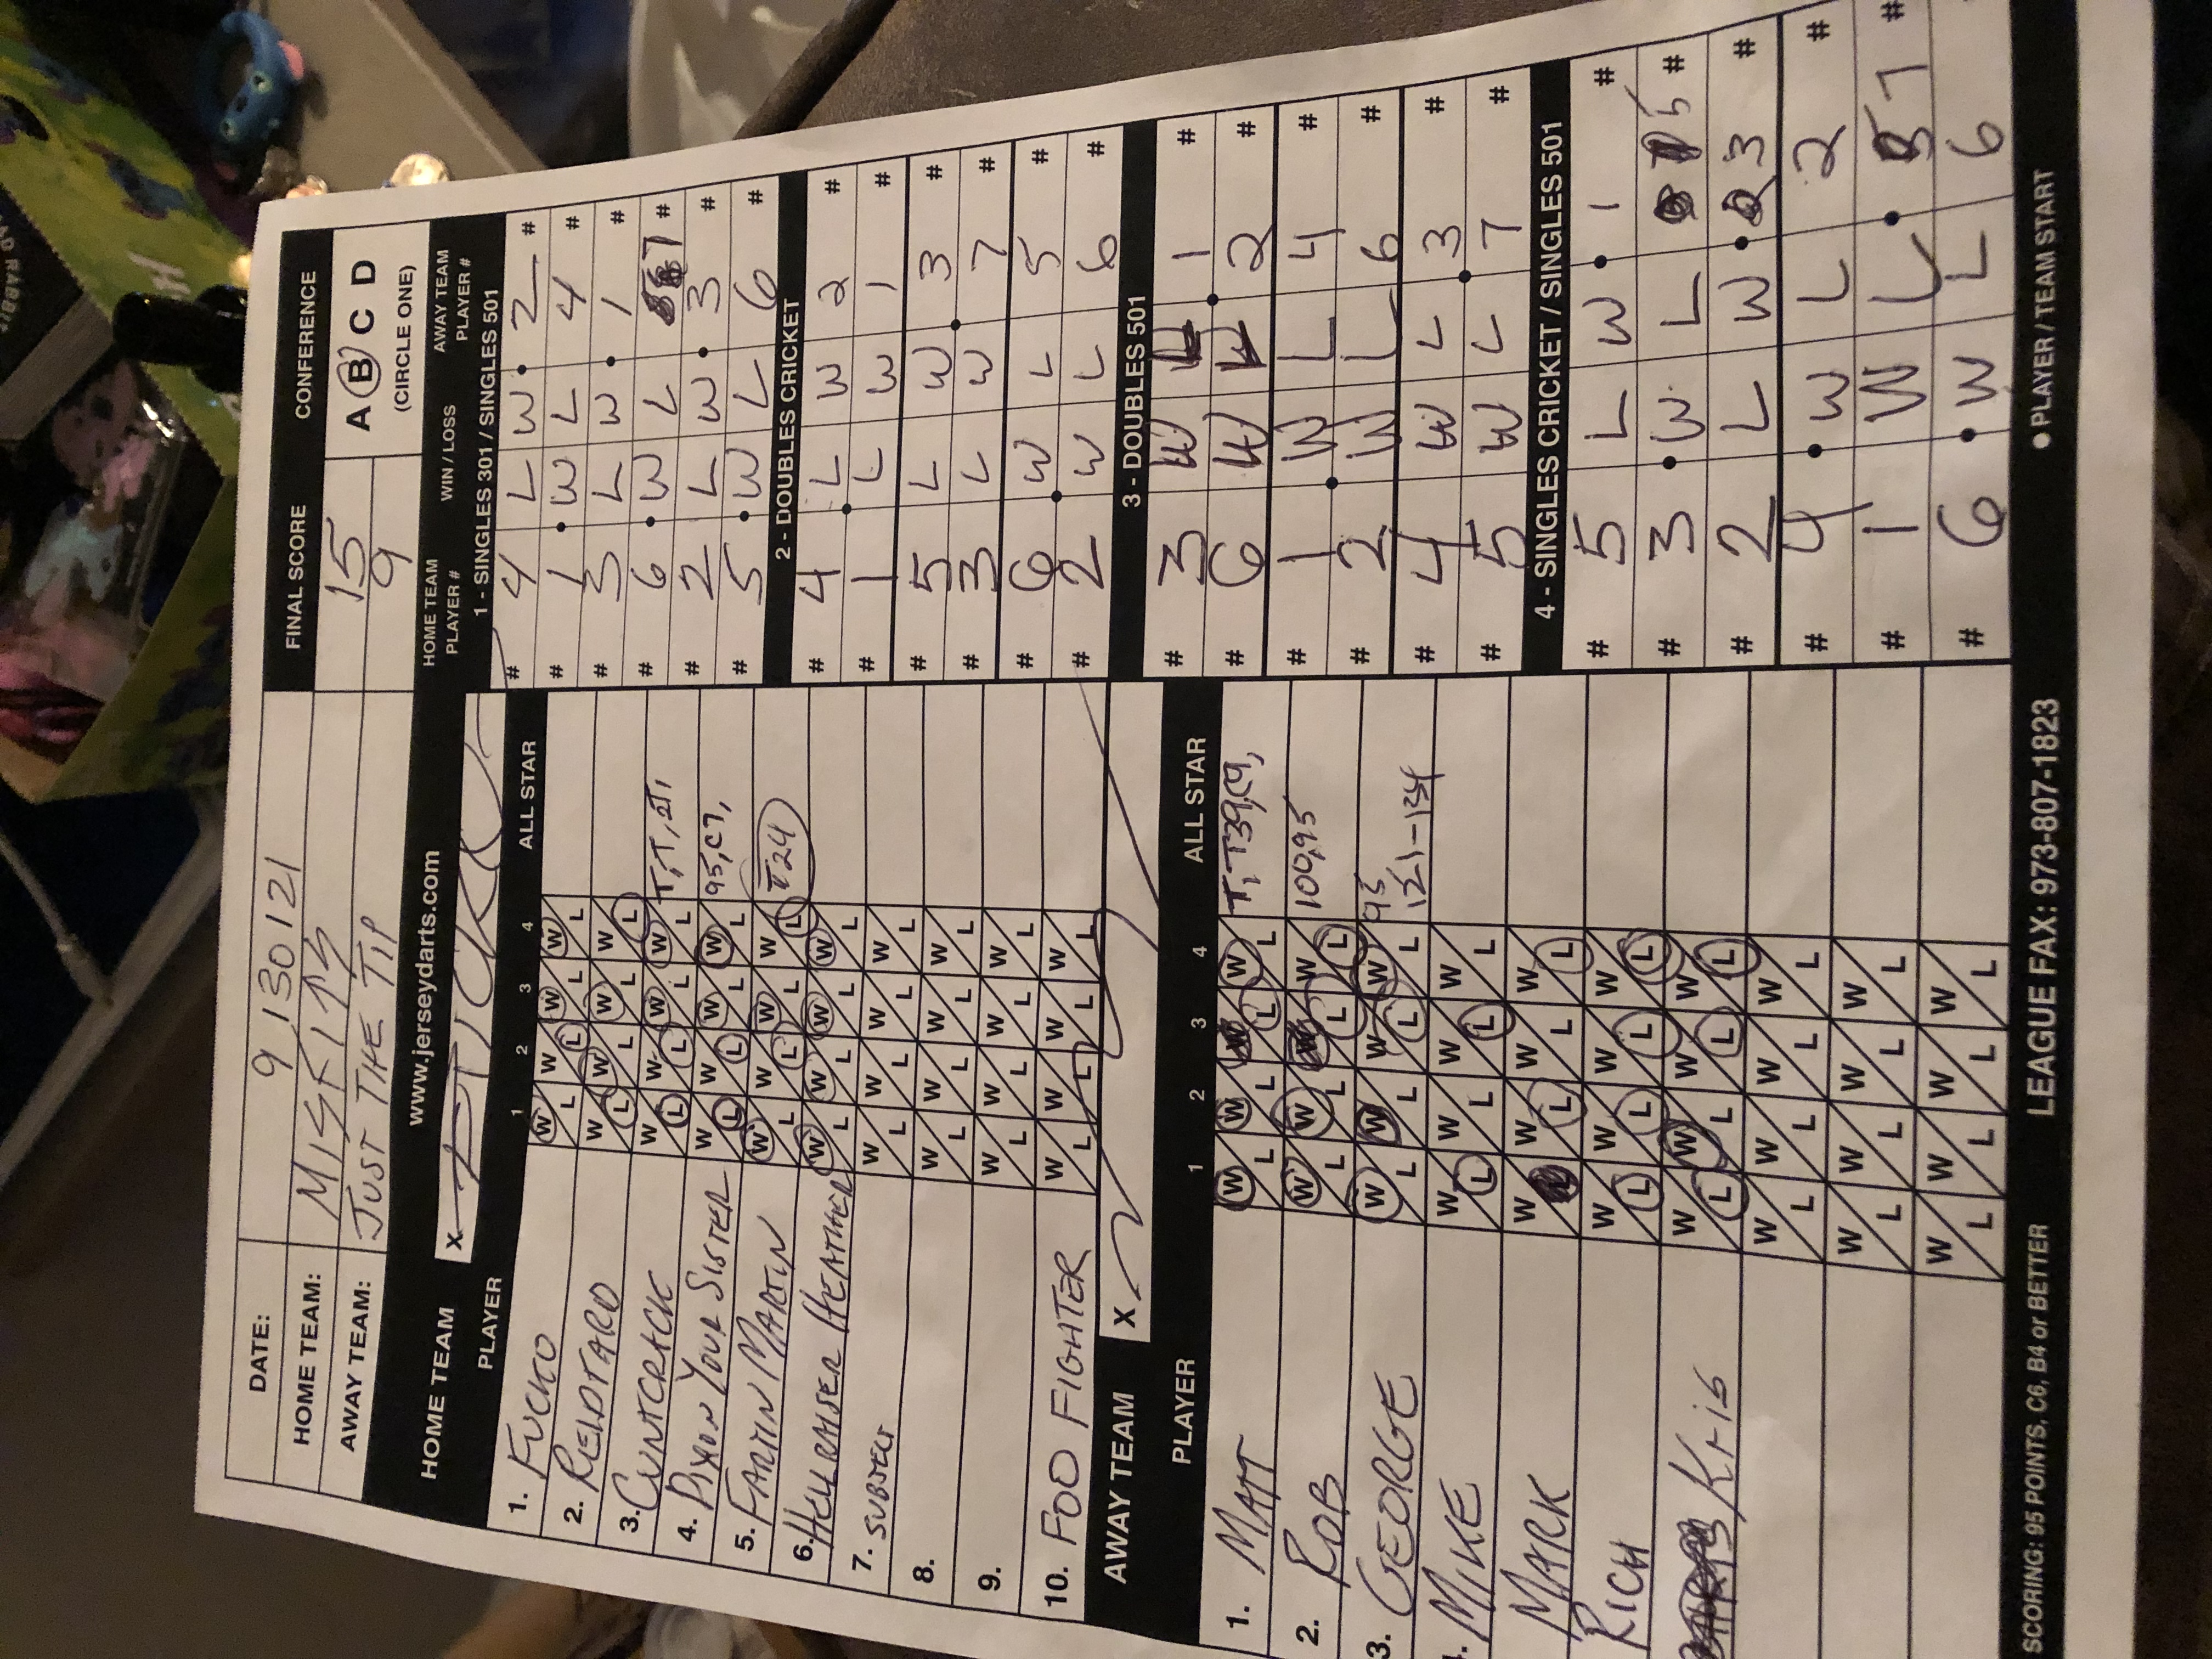 DATE: 9 13012 1
HOME TEAM: MISFITS
AWAY TEAM: JUST THE TIP
FINAL SCORE
15
9
CONFERENCE
A B C D
(CIRCLE ONE)
HOME TEAM www.jerseydarts.com
X
PLAYER 1 2 3 4 ALL STAR
1. FUCKO W L W L W L W L
2. W L W L W L W L
3. CUNTCRACK W L W L W L W L T, T,
4. DIXON YOUR SISTER W L W L W L W L 95, C7,
5. FARTIN MARTIN W L W L W L W L T24
6. HEATHER W L W L W L W L
7. SUBJECT W L W L W L W L
8. W L W L W L W L
9. W L W L W L W L
10. FOO FIGHTER W L W L W L W L
AWAY TEAM X
PLAYER 1 2 3 4 ALL STAR
1. MATT W L W L W L W L T, T39, C9,
2. ROB W L W L W L W L 100, 95
3. GEORGE W L W L W L W L 95
MIKE W L W L W L W L
MARK W L W L W L W L
RICH W L W L W L W L
Kris W L W L W L W L
W L W L W L W L
W L W L W L W L
W L W L W L W L
HOME TEAM PLAYER # WIN / LOSS AWAY TEAM PLAYER #
1 - SINGLES 301 / SINGLES 501
# 4 L W 2 #
# 1 W L 4 #
# 3 L W 1 #
# 6 W L 7 #
# 2 L W 3 #
# 5 W L 6 #
2 - DOUBLES CRICKET
# 4 L W 2 #
# 1 L W 1 #
# 5 L W 3 #
# 3 L W 7 #
# 6 W L 5 #
# 2 W L 6 #
3 - DOUBLES 501
# 3 W L 1 #
# 6 W L 2 #
# 1 W L 4 #
# 2 W L 6 #
# 4 W L 3 #
# 5 W L 7 #
4 - SINGLES CRICKET / SINGLES 501
# 5 L W 1 #
# 3 W L 5 #
# 2 L W 3 #
# 4 W L 2 #
# 1 W L 7 #
# 6 W L 6 #
SCORING: 95 POINTS, C6, B4 or BETTER LEAGUE FAX: 973-807-1823 ● PLAYER / TEAM START